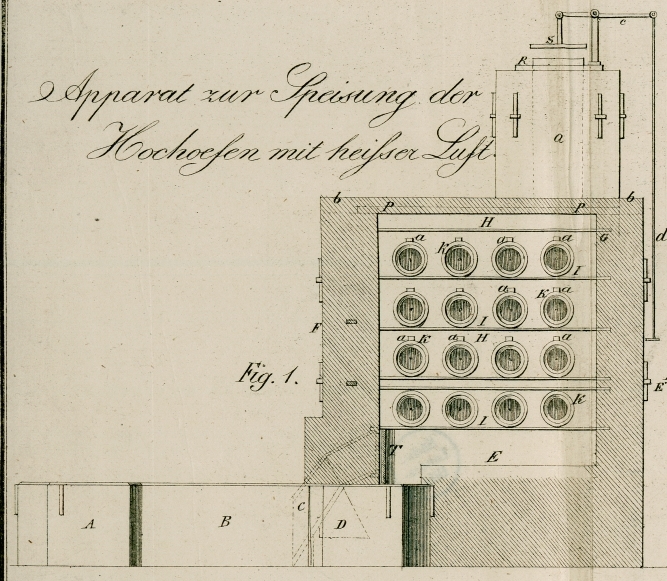 c
S
R
Apparat zur Speisung der
a
Hochoefen mit heißer Luft.
b b
P P
H
a a a G
K d
I
a K a
F I
a K a H a
Fig. 1. E'
K
I
T E
A B C D